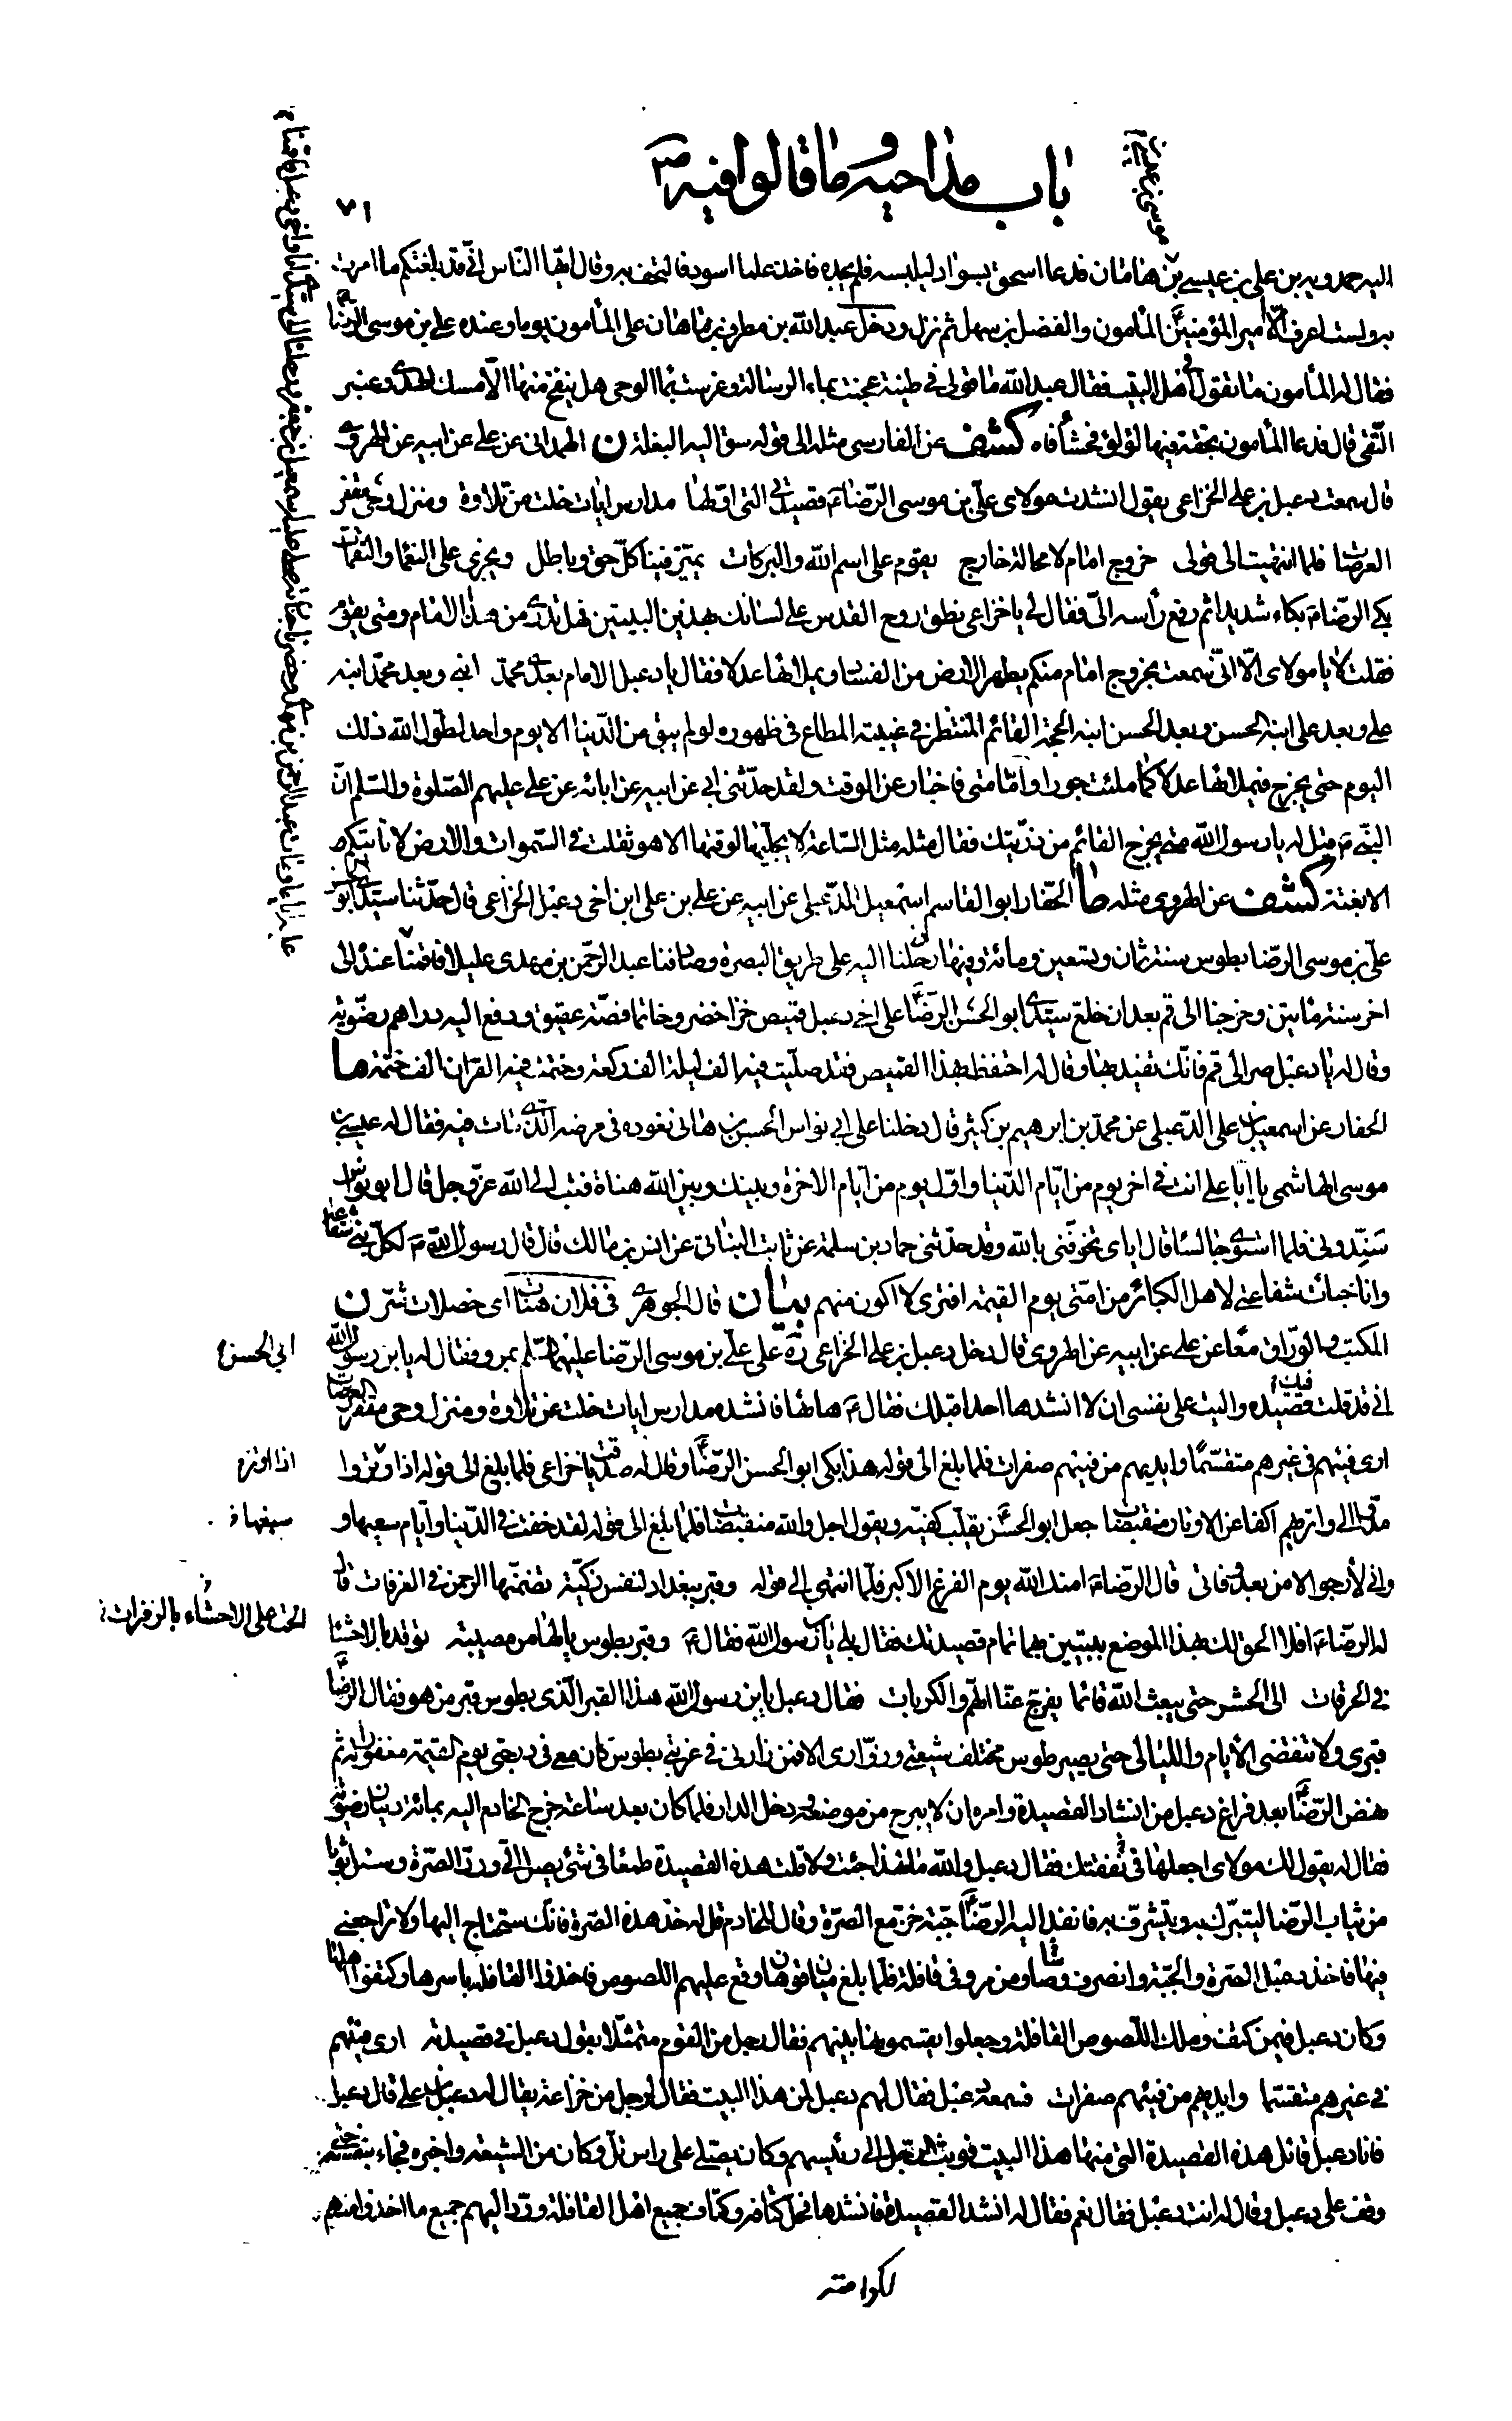 باب مداحيه وما قالوا فيه ص
٧١
اليه حمدويه بن علي بن عيسى بن هامان فدعا اسحق بسواد ليلبسه فلم يجده فاخذ علما اسود فالتحف به وقال ايها الناس اني قد بلغتكم ما امرت
به ولست اعرف الا امير المؤمنين المأمون والفضل بن سهل ثم نزل ودخل عبد الله بن مطرف بن ماهان على المأمون يوما وعنده علي بن موسى الرضا
فقال له المأمون ما تقول في اهل البيت فقال عبد الله ما قولي في طينة عجنت بماء الرسالة وغرست بماء الوحي هل ينفح منها الا مسك الهدى وعنبر
التقى قال فدعا المأمون بحقة فيها لؤلؤ فحشا فاه كشف عن الفارسي مثله الى قوله سق اليه البغلة ن الهمداني عن علي عن ابيه عن الهروي
قال سمعت دعبل بن علي الخزاعي يقول انشدت مولاي علي بن موسى الرضا ع قصيدتي التي اولها مدارس ايات خلت من تلاوة ومنزل وحي مقفر
العرصات فلما انتهيت الى قولي خروج امام لا محالة خارج يقوم على اسم الله والبركات يميز فينا كل حق وباطل ويجزي على النعماء والنقمات
بكى الرضا ع بكاء شديدا ثم رفع رأسه الي فقال لي يا خزاعي نطق روح القدس على لسانك بهذين البيتين فهل تدري من هذا الامام ومتى يقوم
فقلت لا يا مولاي الا اني سمعت بخروج امام منكم يطهر الارض من الفساد ويملأها عدلا فقال يا دعبل الامام بعدي محمد ابني وبعد محمد ابنه
علي وبعد علي ابنه الحسن وبعد الحسن ابنه الحجة القائم المنتظر في غيبته المطاع في ظهوره لو لم يبق من الدنيا الا يوم واحد لطول الله ذلك
اليوم حتى يخرج فيملأها عدلا كما ملئت جورا واما متى فاخبار عن الوقت ولقد حدثني ابي عن ابيه عن ابائه عن علي عليهم الصلوة والسلم ان
النبي ص قيل له يا رسول الله متى يخرج القائم من ذريتك فقال مثله مثل الساعة لا يجليها لوقتها الا هو ثقلت في السموات والارض لا تأتيكم
الا بغتة كشف عن الهروي مثله ما الحفار ابو القاسم اسمعيل الدعبلي عن ابيه عن علي بن علي ابن اخي دعبل الخزاعي قال حدثنا سيدي ابو الحسن
علي بن موسى الرضا بطوس سنة ثمان وتسعين ومائة وفيها رحلنا اليه على طريق البصرة وصادفنا عبد الرحمن بن مهدي عليلا فاقمنا عنده الى
اخر سنة مائتين وخرجنا الى قم بعد ان خلع سيدي ابو الحسن الرضا على اخي دعبل قميص خز اخضر وخاتما فضة عقيق ودفع اليه دراهم رضوية
وقال له يا دعبل صر الى قم فانك تفيد بها وقال له احتفظ بهذا القميص فقد صليت فيه الف ليلة الف ركعة وختمت فيه القران الف ختمة ما
الحفار عن اسمعيل بن علي الدعبلي عن محمد بن ابرهيم بن كثير قال دخلنا على ابي نواس الحسن بن هاني نعوده في مرضه الذي مات فيه فقال له عيسى بن
موسى الهاشمي يا ابا علي انت في اخر يوم من ايام الدنيا واول يوم من ايام الاخرة وبينك وبين الله هناة فتب الى الله عز وجل قال ابو نواس
سندوني فلما استوى جالسا قال اياي تخوفني بالله وقد حدثني حماد بن سلمة عن ثابت البناني عن انس بن مالك قال قال رسول الله ص لكل نبي شفاعة
وانا خبأت شفاعتي لاهل الكبائر من امتي يوم القيمة افترى لا اكون منهم بيان قال الجوهري في فلان هنات اي خصلات شر ن
المكتب والوراق معا عن علي عن ابيه عن الهروي قال دخل دعبل بن علي الخزاعي ره على علي بن موسى الرضا عليهما السلم بمرو فقال له يا ابن رسول الله
اني قد قلت فيك قصيدة واليت على نفسي ان لا انشدها احدا قبلك فقال ع هاتها فانشده مدارس ايات خلت عن تلاوة ومنزل وحي مقفر العرصات
ارى فيئهم في غيرهم متقسما وايديهم من فيئهم صفرات فلما بلغ الى قوله هذا بكى ابو الحسن الرضا وقال له صدقت يا خزاعي فلما بلغ الى قوله اذا وتروا
مدوا الى واتريهم اكفا عن الاوتار منقبضات جعل ابو الحسن يقلب كفيه ويقول اجل والله منقبضات فلما بلغ الى قوله لقد خفت في الدنيا وايام سعيها و
واني لارجو الامن بعد وفاتي قال الرضا ع امنك الله يوم الفزع الاكبر فلما انتهى الى قوله وقبر ببغداد لنفس زكية تضمنها الرحمن في الغرفات قال
له الرضا ع افلا الحق لك بهذا الموضع بيتين بهما تمام قصيدتك فقال بلى يا ابن رسول الله فقال ع وقبر بطوس يا لها من مصيبة توقد بالاحشاء
في الحرقات الى الحشر حتى يبعث الله قائما يفرج عنا الهم والكربات فقال دعبل يا بن رسول الله هذا القبر الذي بطوس قبر من هو فقال الرضا
قبري ولا تنقضي الايام والليالي حتى يصير طوس مختلف شيعتي وزواري الا فمن زارني في غربتي بطوس كان معي في درجتي يوم القيمة مغفورا له ثم
نهض الرضا بعد فراغ دعبل من انشاد القصيدة وامره ان لا يبرح من موضعه ودخل الدار فلما كان بعد ساعة خرج الخادم اليه بمائة دينار رضوية
فقال له يقول لك مولاي اجعلها في نفقتك فقال دعبل والله ما لهذا جئت ولا قلت هذه القصيدة طمعا في شئ يصل الي ورد الصرة وسئل ثوبا
من ثياب الرضا ليتبرك به ويتشرف به فانفذ اليه الرضا جبة خز مع الصرة وقال للخادم قل له خذ هذه الصرة فانك ستحتاج اليها ولا تراجعني
فيها فاخذ دعبل الصرة والجبة وانصرف وصار من مرو في قافلة فلما بلغ ميان قوهان وقع عليهم اللصوص فاخذوا القافلة باسرها وكتفوا اهلها
وكان دعبل فيمن كتف وملك اللصوص القافلة وجعلوا يقسمونها بينهم فقال رجل من القوم متمثلا بقول دعبل في قصيدته ارى فيئهم
في غيرهم متقسما وايديهم من فيئهم صفرات فسمعه دعبل فقال لهم دعبل لمن هذا البيت فقال لرجل من خزاعة يقال له دعبل بن علي قال دعبل
فانا دعبل قائل هذه القصيدة التي منها هذا البيت فوثب الرجل الى رئيسهم وكان يصلي على راس تل وكان من الشيعة واخبره فجاء بنفسه حتى
وقف على دعبل وقال له انت دعبل فقال نعم فقال له انشد القصيدة فانشدها فحل كتافه وكتاف جميع اهل القافلة ورد اليهم جميع ما اخذوا منهم
ابي الحسن
سعيها
لكرامته